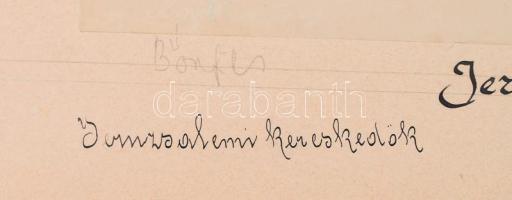 Jer
darabanth
Jeruzsalemi kereskedők